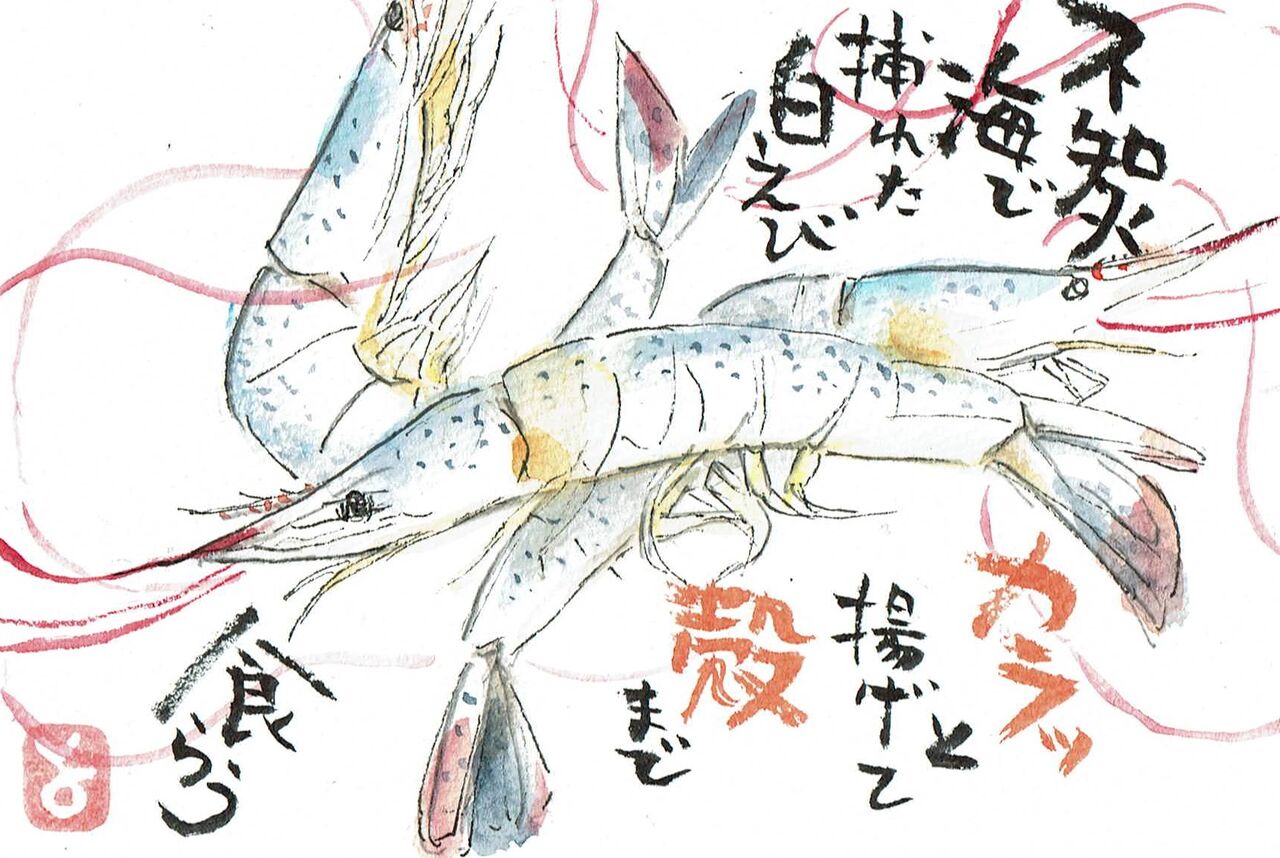 不知火
海で
捕れた
白えび
カラッ
と
揚げて
殻
まで
食らう